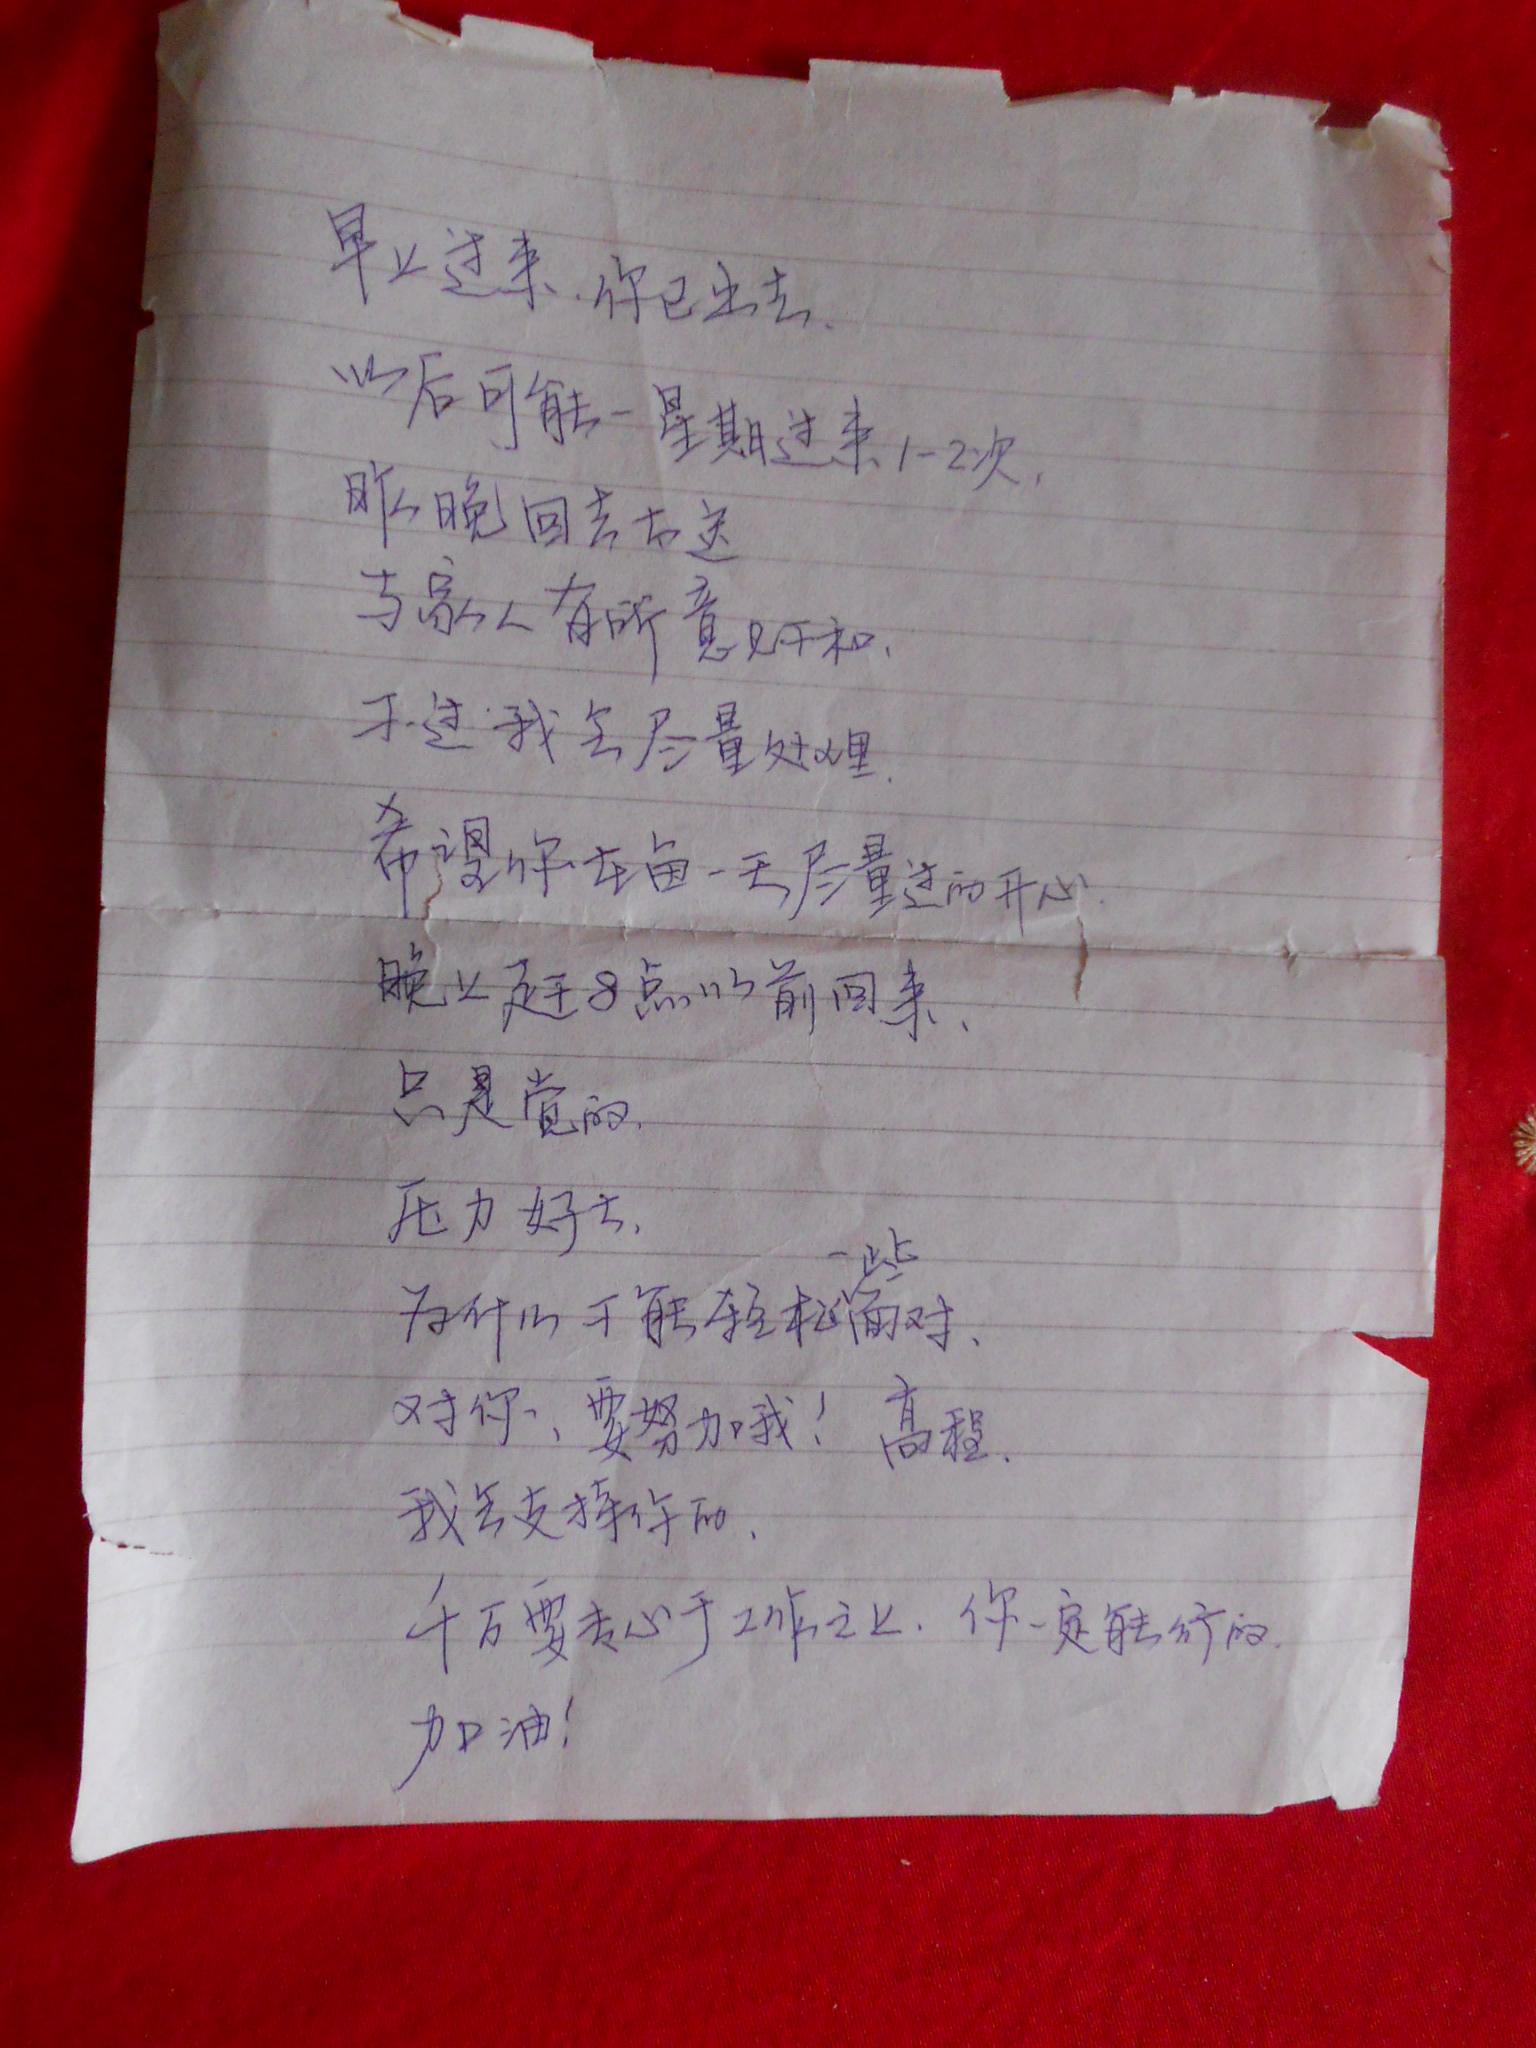 早上过来.你已出去.
以后可能一星期过来1-2次.
昨晚回去右送
与家人有所意见不和.
不过.我会尽量处理.
希望你在每一天尽量过的开心.
晚上赶8点以前回来、
只是觉的.
压力好大.
为什么不能轻松一些面对、
对你、要努力哦! 高程.
我会支持你的.
千万要专心于工作之上.你一定能行的.
加油!